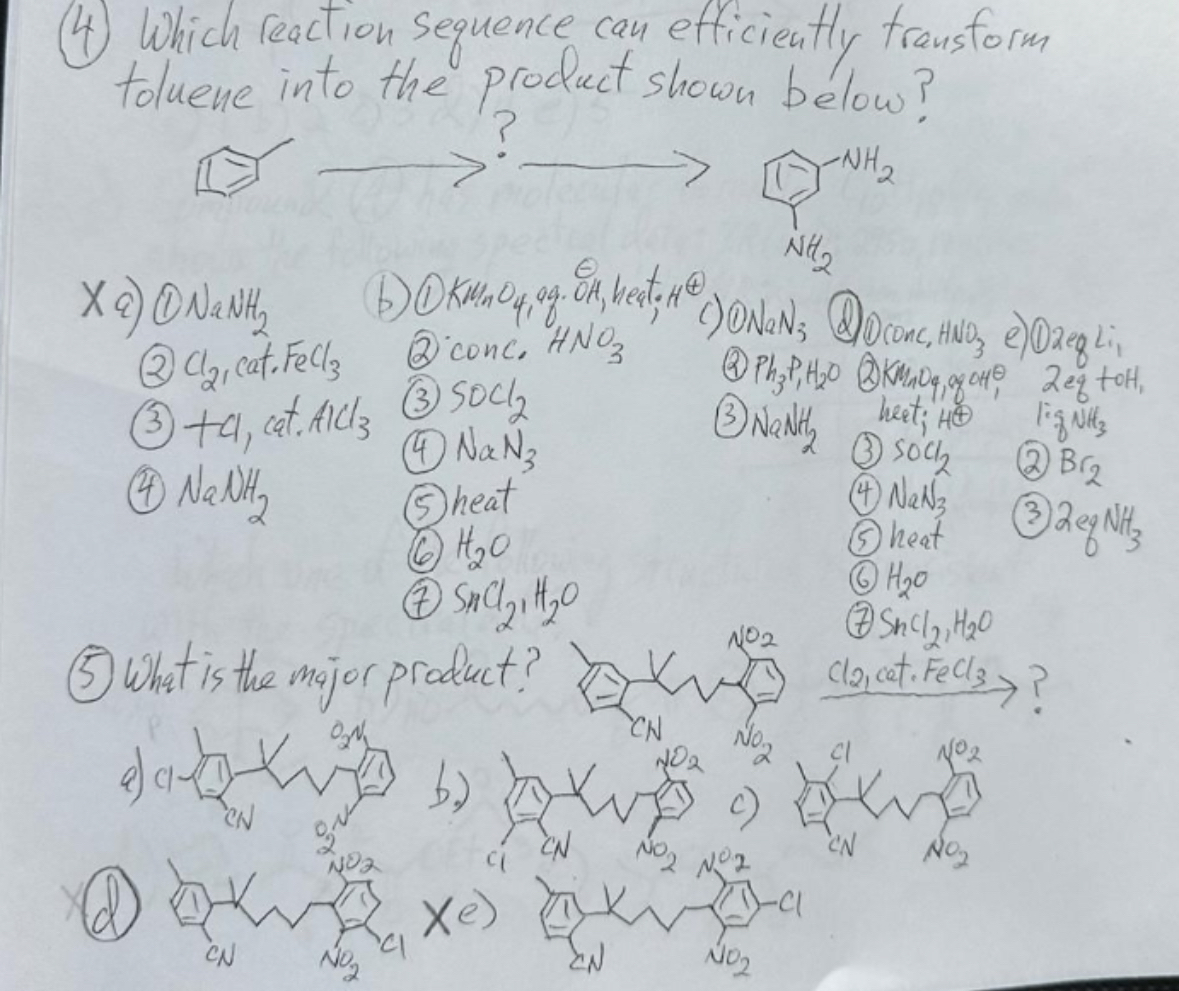 ④ Which reaction sequence can efficiently transform
toluene into the product shown below?
?
NH₂
NH₂
X a) ① NaNH₂
② Cl₂, cat. FeCl₃
③ +Cl, cat. AlCl₃
④ NaNH₂
b) ① KMnO₄, aq. ⊖OH, heat; H⊕
② conc. HNO₃
③ SOCl₂
④ NaN₃
⑤ heat
⑥ H₂O
⑦ SnCl₂, H₂O
c) ① NaN₃
② Ph₃P, H₂O
③ NaNH₂
d) ① conc. HNO₃
② KMnO₄, aq OH⊖,
heat; H⊕
③ SOCl₂
④ NaN₃
⑤ heat
⑥ H₂O
⑦ SnCl₂, H₂O
e) ① 2eq Li,
2eq +OH,
liq NH₃
② Br₂
③ 2eq NH₃
⑤ What is the major product?
NO₂
CN
NO₂
Cl₂, cat. FeCl₃
?
a) Cl
O₂N
CN
O₂N
b.)
NO₂
Cl
CN
NO₂
c)
Cl
NO₂
CN
NO₂
X d)
NO₂
CN
NO₂
Cl
X e)
NO₂
Cl
CN
NO₂